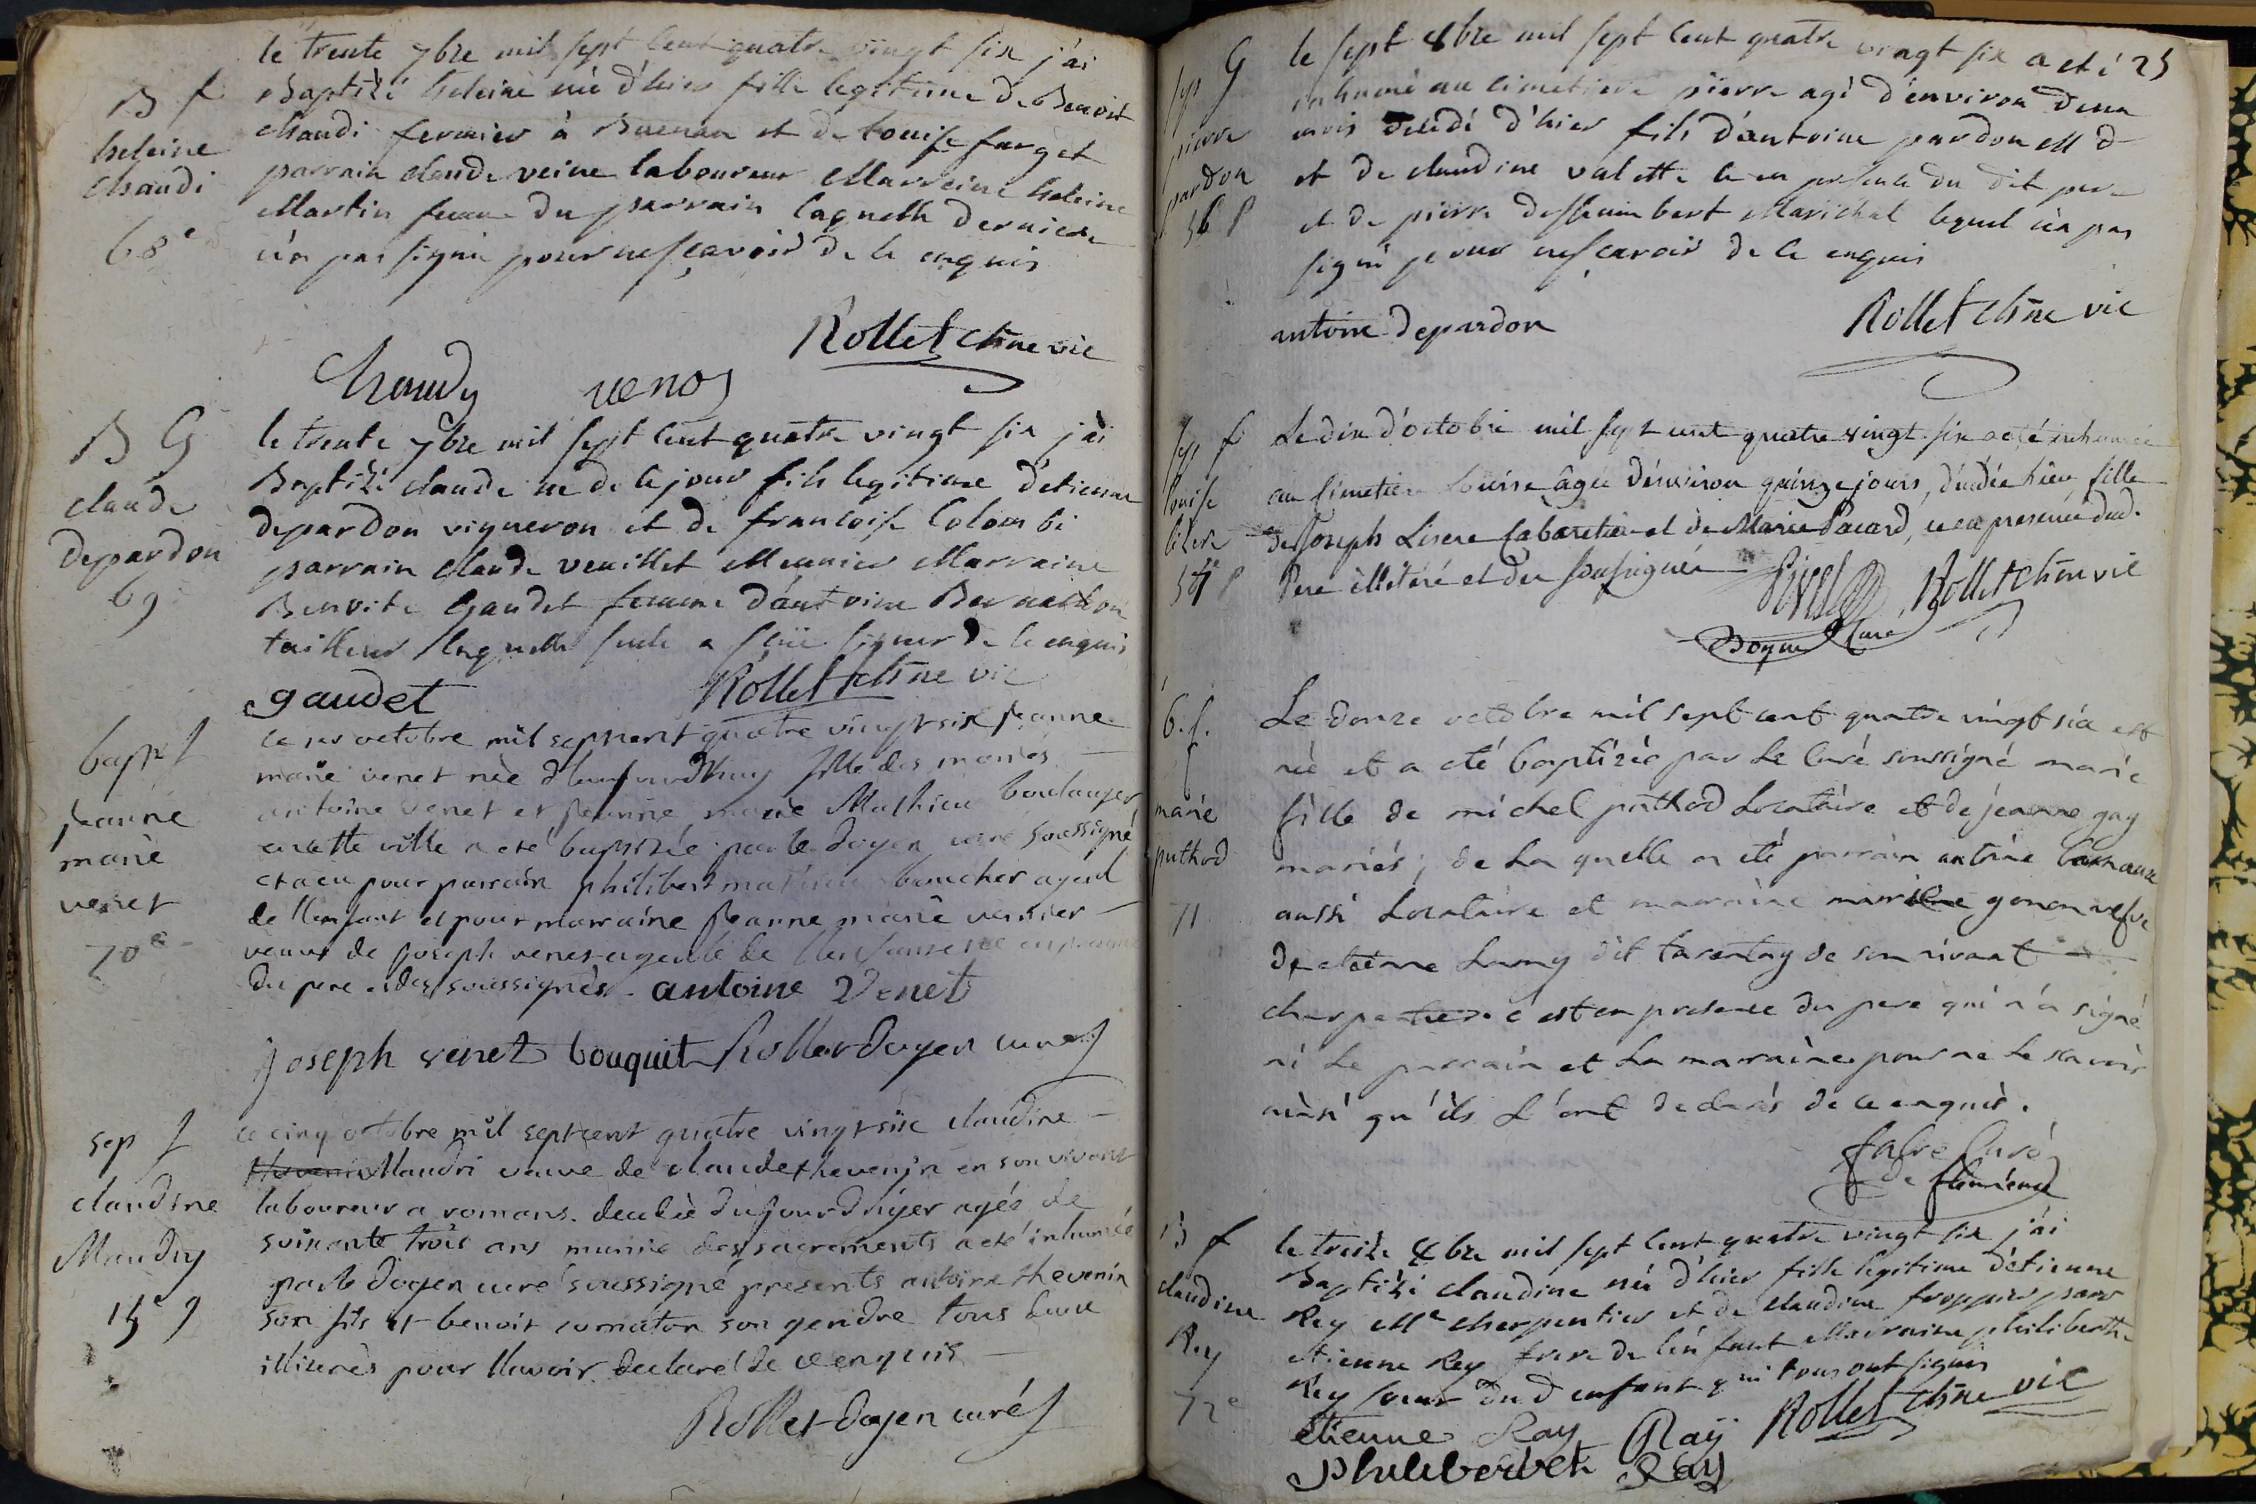 B f
heleine
chaudi
68e
le trente 7bre mil sept cent quatre vingt six j'ai
Baptizé heleine née d'hier fille legitime de Benoit
chaudi fermier à Buenan et de Louise farget
parrain claude veine laboureur Marreine heleine
Martin femme du parrain laquelle derniere
n'a pas signé pour ne sçavoir de ce enquis
Rollet chne vic
Chaudy venos
B G
claude
depardon
69
le trente 7bre mil sept cent quatre vingt six j'ai
Baptizé claude né de ce jour fils legitime d'etienne
depardon vigneron et de francoise Colombi
parrain claude veuillet Meunier Marraine
Benoite Gaudet femme d'antoine Bernachon
tailleur laquelle seule a sçüe signer de ce enquis
gaudet Rollet chne vic
bapt f
jeanne
marie
venet
70e
ce octobre mil sept cent quatre vingt six jeanne
marie venet née d'haujourdhuy fille des mariés
antoine venet et jeanne marie Mathieu boulanger
en cette ville a eté baptizée par le doyen curé soussigné
et a eu pour parrain philibert mathieu boucher ayeul
de l'enfant et pour marraine jeanne marie vernier
veuve de joseph venet ayeule de l'enfant
du pere et des soussignés. antoine Venet
joseph venet bouquit Rollet doyen curé
sep f
claudine
Maudry
15e
ce cinq octobre mil sept cent quatre vingt six claudine
Maudri veuve de claude thevenin en son vivant
laboureur a romans. decedée du jour d'hyer agée de
soixante trois ans munie des sacrements a eté inhumée
par le doyen curé soussigné presents antoine thevenin
son fils et benoit comaton son gendre tous deux
illiterés pour l'avoir declaré de ce enquis
Rollet doyen curé
sep G
pierre
pardon
56 P
le sept 8bre mil sept cent quatre vingt six a eté 25
inhumé au cimetiere pierre agé d'environ d'un
mois decedé d'hier fils d'antoine pardon M d
et de claudine valette ce en presence du dit pere
et de pierre deschaimbert Marichal lequel n'a pas
signé pour ne sçavoir de ce enquis
antoine depardon Rollet chne vic
sep f
louise
lizere
57e P
Le dix d'octobre mil sept cent quatre vingt six a eté inhumée
au Cimetiere Louise âgée d'environ quinze jours, décédée hier, fille
de Joseph Lisere Cabaretier et de Marie Pacard, ce en presence dud.
Pere illetéré et des soussignés Rollet chne vic
Doyen Curé
b. f.
f
marie
puthod
71
Le douze octobre mil sept cent quatre vingt six est
née et a eté baptizée par Le Curé soussigné marie
fille de michel puthod Locataire et de jeanne gay
mariés; de La quelle a eté parrain antoine barnaux
aussi Locataire et marraine gonon vefve
de etienne Lamy dit tarantay de son vivant
charpentier. c'est en presence du pere qui n'a signé
ni Le parrain et La marraine pour ne Le scavoir
ainsi qu'ils L'ont declaré de ce enquis.
fabre Curé
de
B f
claudine
Rey
72e
le treize 8bre mil sept cent quatre vingt six j'ai
Baptizé claudine née d'hier fille legitime d'etienne
Rey Me charpentier et de claudine froppier parr
etienne Rey frere de l'enfant Marraine philiberthe
Rey soeur dud enfant qui tous ont signés
Rollet chne vic
etienne Ray Raÿ
philiberbet Ray